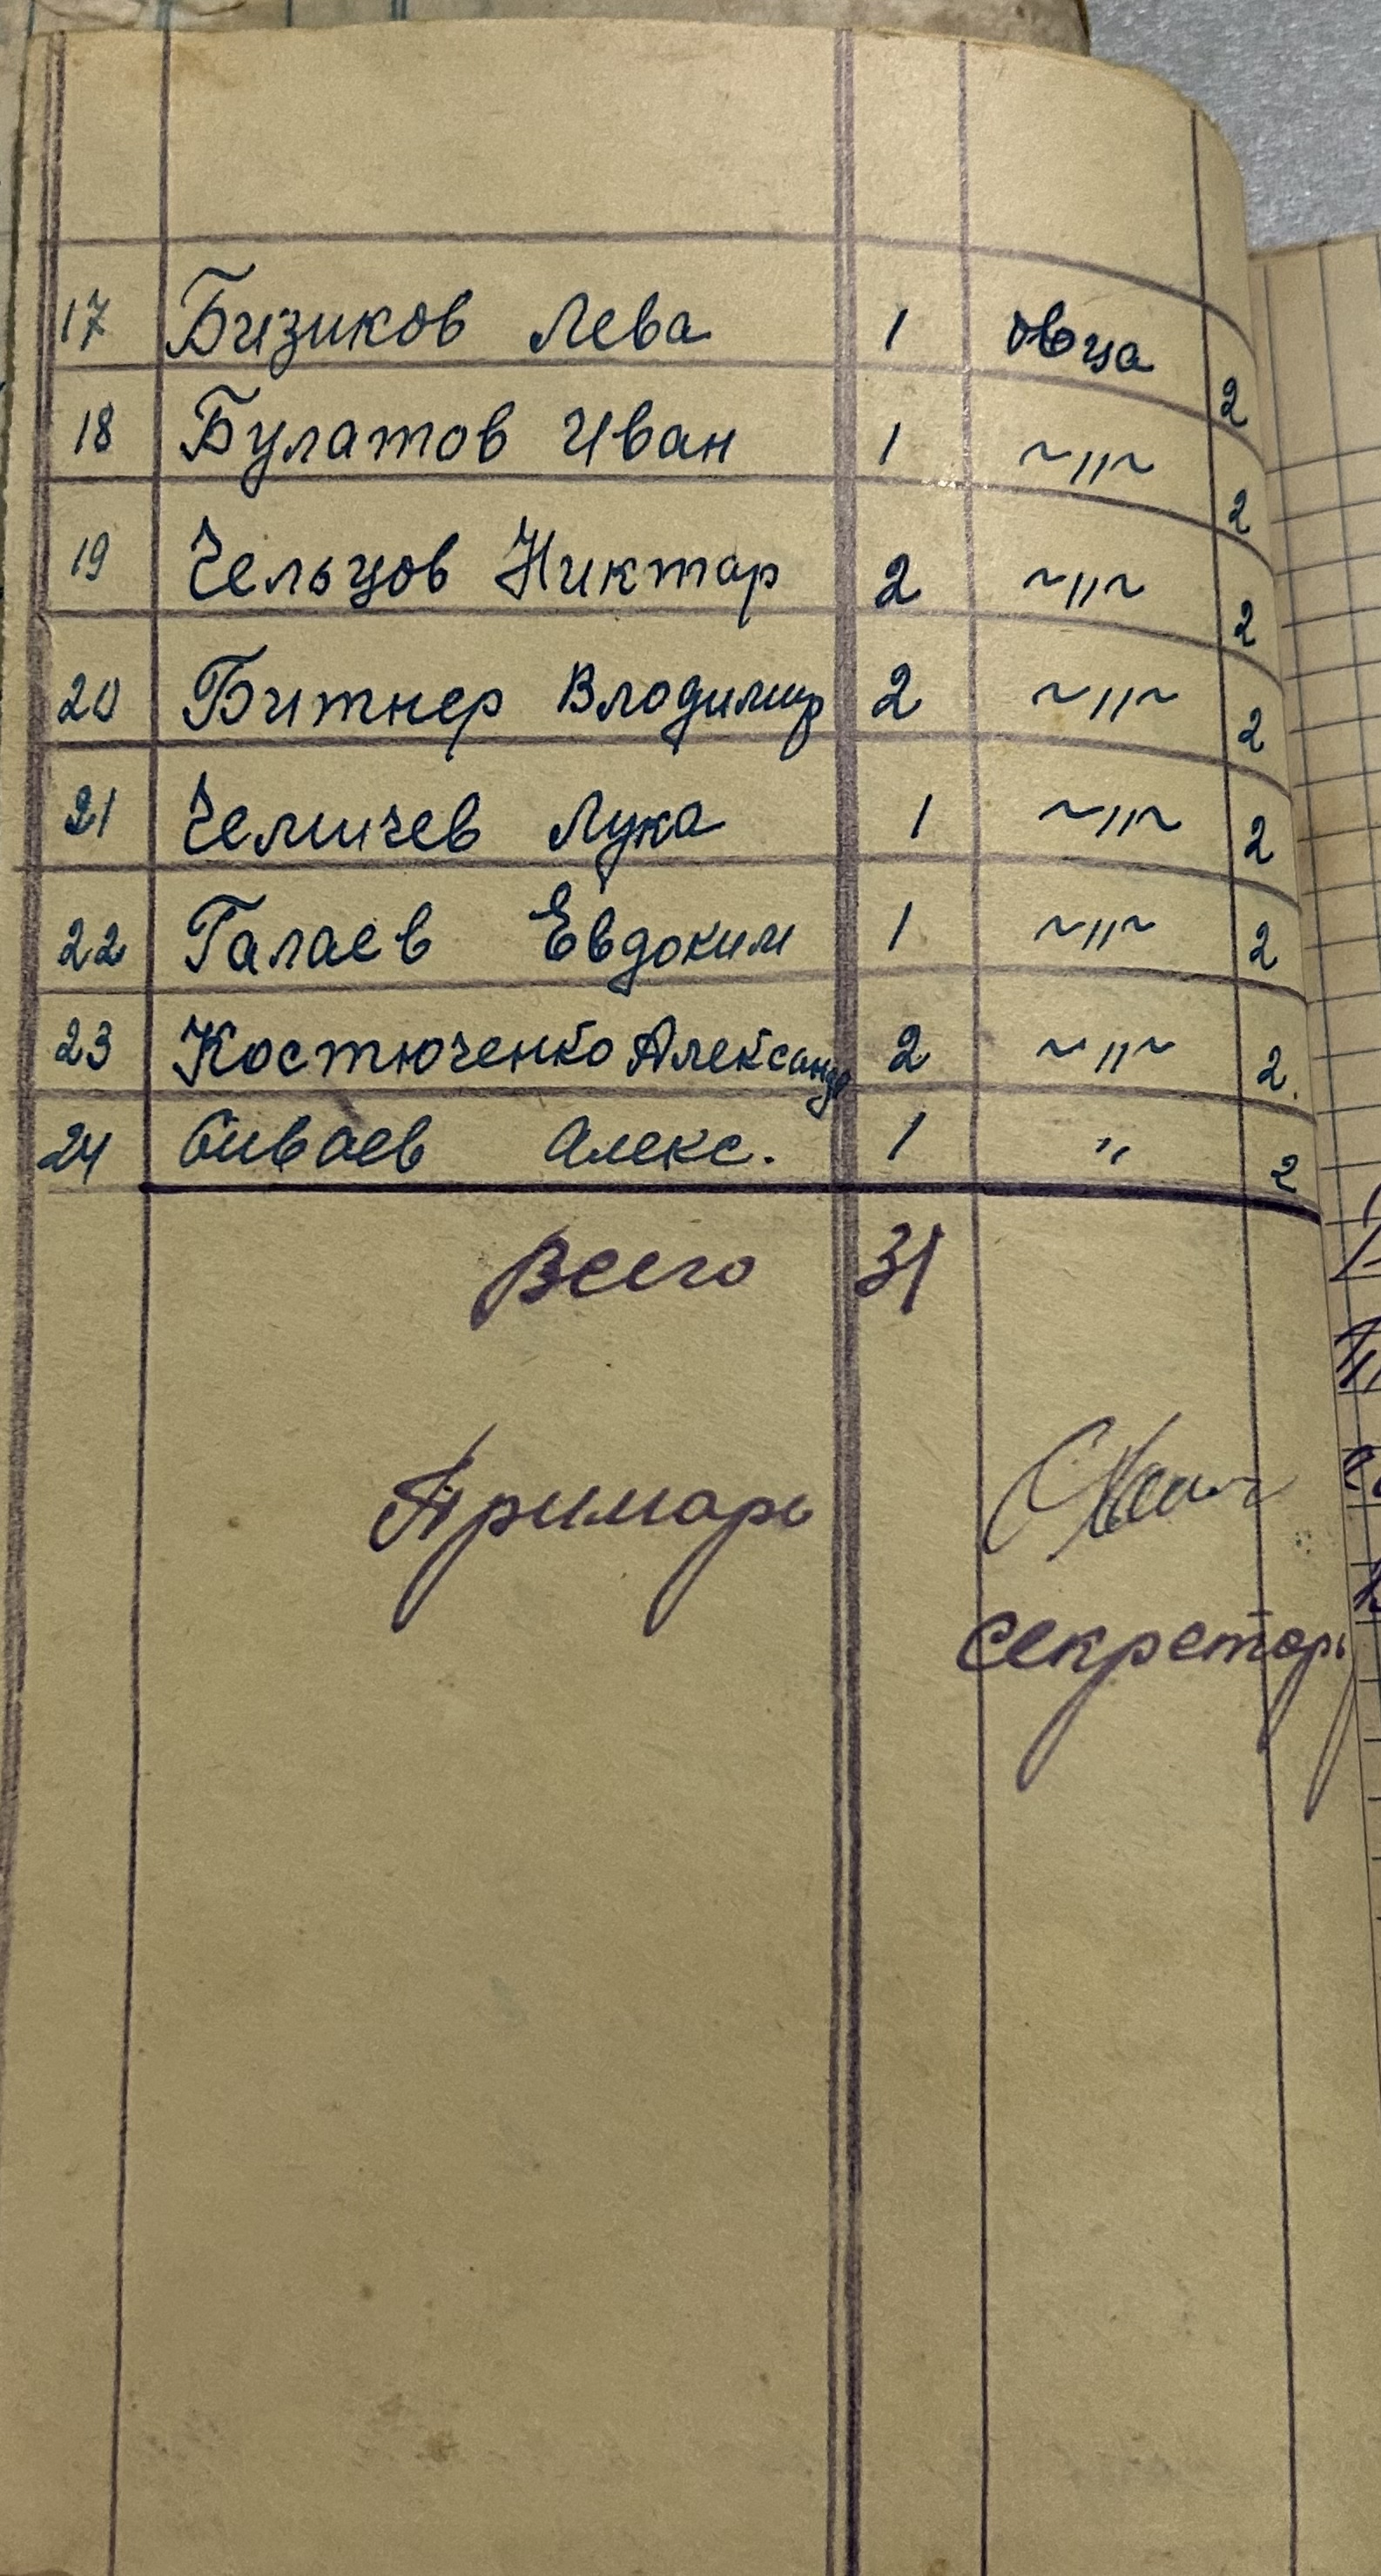 17 Бизиков Лева 1 овца 2
18 Булатов Иван 1 ~„~ 2
19 Чельцов Никтар 2 ~„~ 2
20 Битнер Владимир 2 ~„~ 2
21 Челичев Лука 1 ~„~ 2
22 Галаев Евдоким 1 ~„~ 2
23 Костюченко Александр 2 ~„~ 2.
24 Сиваев Алекс. 1 „ 2
Всего 31
Примарь
Секретарь